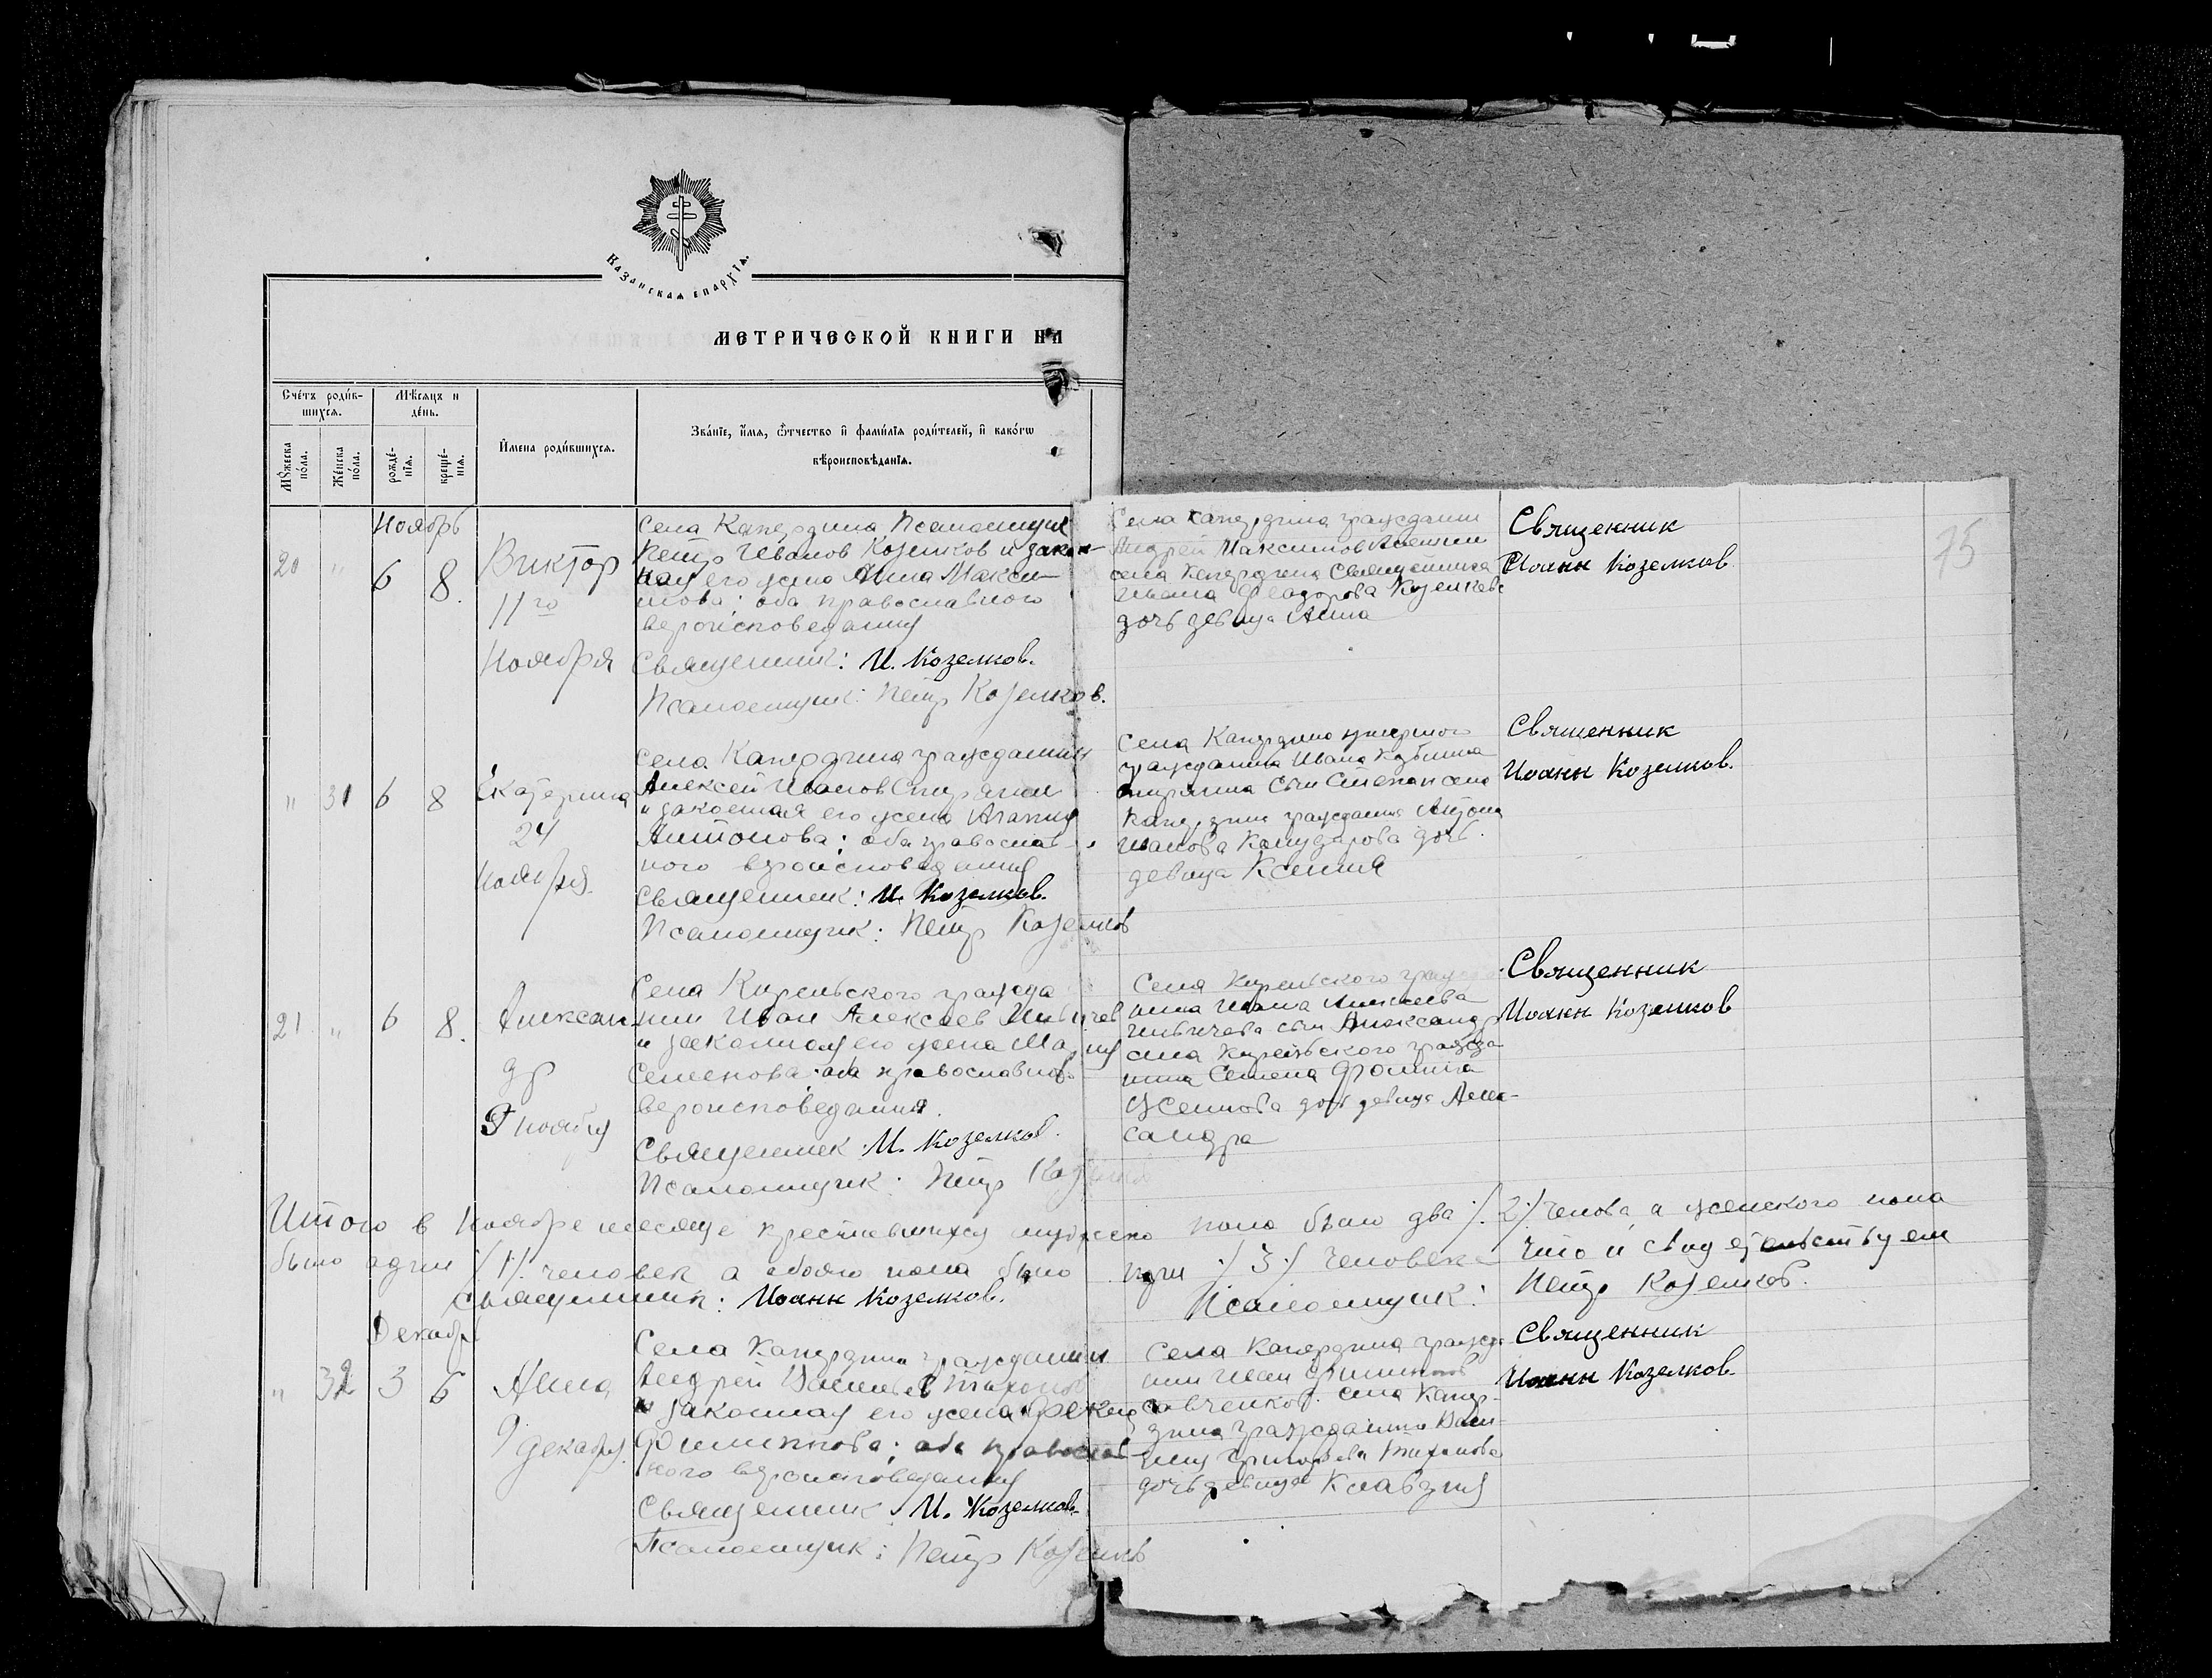 Казанская епархія.
МЕТРИЧЕСКОЙ КНИГИ НА
Счетъ родившихся.
Мѣсяцъ и день.
Имена родившихся.
Званіе, имя, отчество и фамилія родителей, и какогω вѣроисповѣданія.
Мужеска пола.
Женска пола.
рожденія.
крещенія.
75
Ноябрь
20 " 6 8.
Виктор
11го
Ноября
Села Псаломщик
Петр Иванов Козелков и закон-
ная его жена Анна Макси-
мова; оба православного
вероисповедания
Священник: И. Козелков.
Псаломщик: Петр Козелков.
Села гражданин
Андрей Максимов
села Священника
Ивана Феодорова Козелкова
дочь девица Анна
Священник
Иоанн Козелков.
" 31 6 8
Екатерина
24
ноября.
Села гражданин
Алексей Иванов
и законная его жена
Антонова; оба православ-
ного вероисповедания
Священник: И. Козелков.
Псаломщик: Петр Козелков
Села
гражданина Ивана
сын Степан села
гражданина Антона
Иванова дочь
девица Ксения
Священник
Иоанн Козелков.
21 " 6 8.
Алексан-
др
9 ноября
Села Кирельского гражда
нин Иван Алексеев
и законная его жена Мария
Семенова; оба православного
вероисповедания.
Священник И. Козелков.
Псаломщик: Петр
Села Кирельского
Ивана Алексеева
сын Александр
села Кирельского гражда-
нина Семена
дочь девица Алек-
сандра
Священник
Иоанн Козелков
Итого в Ноябре месяце крестившихся мужеско пола было два /2/ челов а женского пола
было один /1/ человек а обоего пола было три /3/ человека Что и свидетельствуем
Священник: Иоанн Козелков. Псаломщик: Петр Козелков.
Декабрь
" 32 3 6
Анна
9 декабря.
Села гражданин
Андрей Васильев Тихонов
и законная его жена
Филиппова; оба православ-
ного вероисповедания
Священник И. Козелков.
Псаломщик: Петр Козелков
Села гражда-
нин Иван Филиппов
села
дина гражданина Васи-
лия Григорьева Тихонова
дочь девица Клавдия
Священник
Иоанн Козелков.